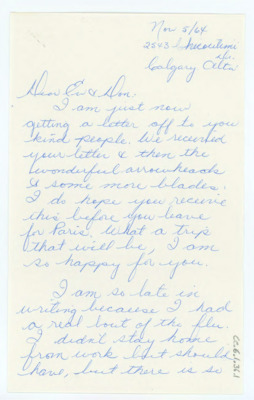 Nov 5/64.
2543
Dr.
Calgary Alta
Dear Ev & Don.
I am just now
getting a letter off to you
kind people. We received
your letter & then the
wonderful arrowheads
& some more blades.
I do hope you receive
this before you leave
for Paris. What a trip
that will be, I am
so happy for you.
I am so late in
writing because I had
a real bout of the flu.
I didn't stay home
from work but should
have, but there is so